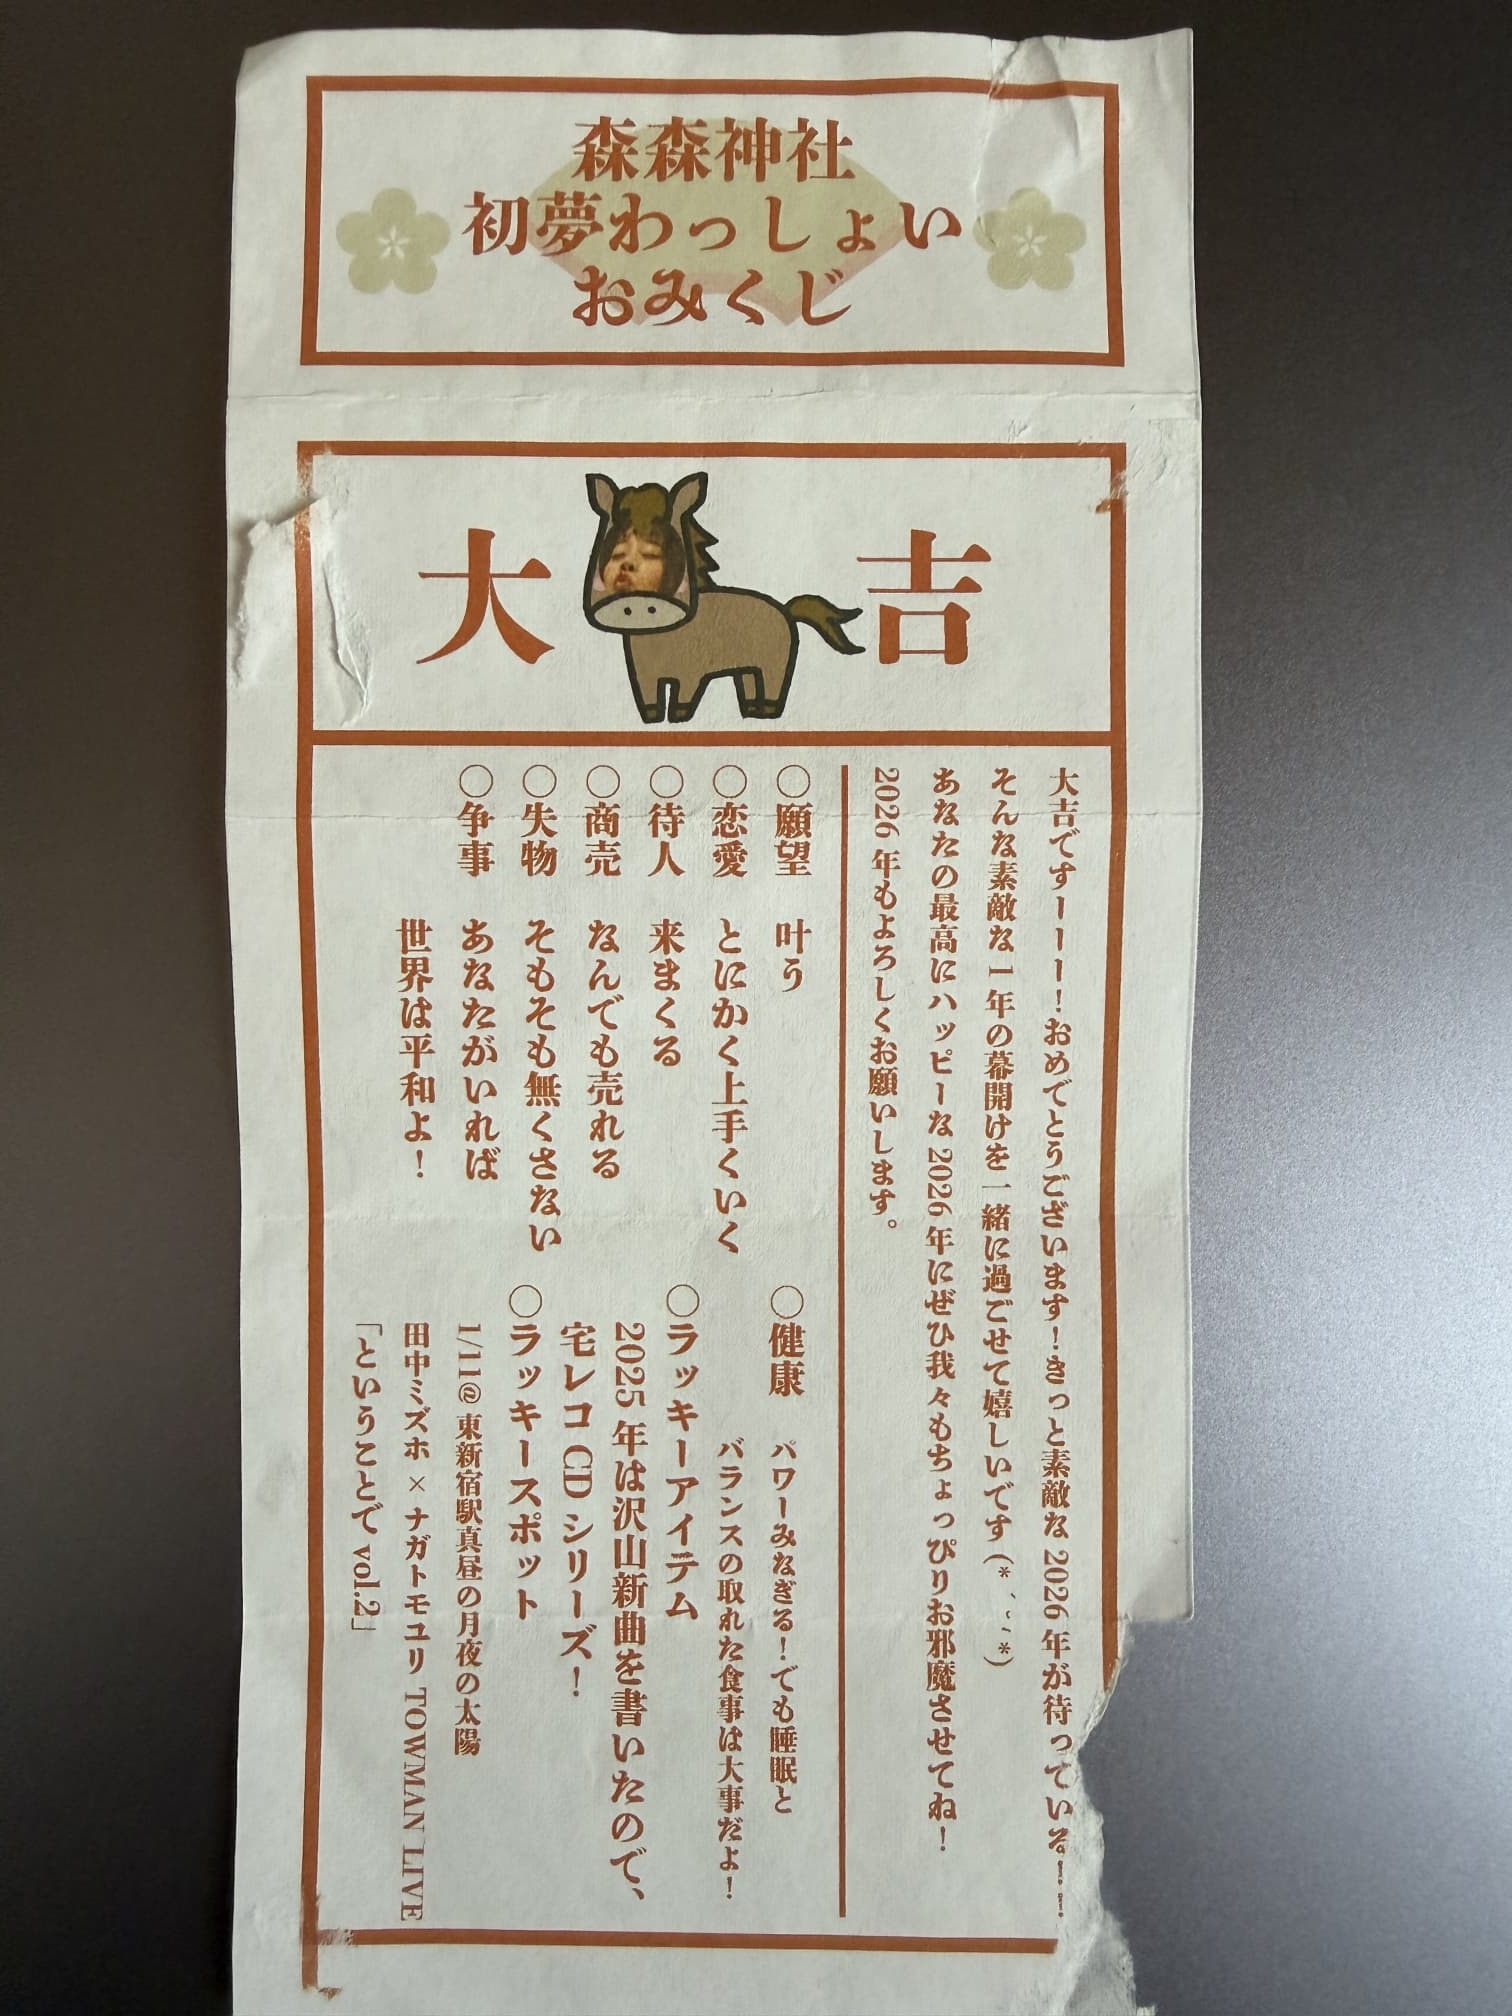 森森神社
初夢わっしょい
おみくじ
大吉
大吉ですーーー！おめでとうございます！きっと素敵な2026年が待っている
そんな素敵な1年の幕開けを一緒に過ごせて嬉しいです
あなたの最高にハッピーな2026年にぜひ我々もちょっぴりお邪魔させてね！
2026年もよろしくお願いします。
○願望 叶う
○恋愛 とにかく上手くいく
○待人 来まくる
○商売 なんでも売れる
○失物 そもそも無くさない
○争事 あなたがいれば
世界は平和よ！
○健康 パワーみなぎる！でも睡眠と
バランスの取れた食事は大事だよ！
○ラッキーアイテム
2025年は沢山新曲を書いたので、
宅レコCDシリーズ！
○ラッキースポット
1/11@東新宿駅真昼の月夜の太陽
田中ミズホ×ナガトモユリ TOWMAN LIVE
「ということで vol.2」